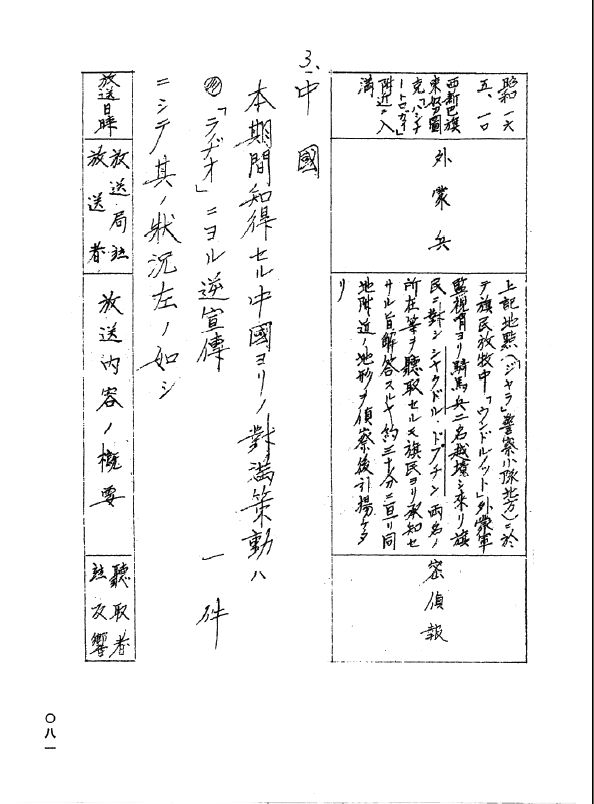 昭和一六
五、一〇
西新巴旗
東努圖
克「ハシヤ
ートロガイ」
附近ノ入
満
外蒙兵
上記地點(「ジャラ」警察小隊地方)ニ於
テ旗民放牧中「ウンドルノット」外蒙軍
監視哨ヨリ騎馬兵二名越境シ来リ旗
民ニ對シシャクドル・ドプチン両名ノ
所在等ヲ聽取セルモ旗民ヨリ承知セ
サル旨解答スルヤ約三十分ニ亘リ同
地附近ノ地形ヲ偵察後引揚ケタ
リ
密偵報
3、中國
本期間知得セル中國ヨリノ對満策動ハ
「ラヂオ」ニヨル逆宣傳 一件
ニシテ其ノ狀況左ノ如シ
放送日時
放送局並
放送者
放送内容ノ概要
聽取者
並反響
〇八一